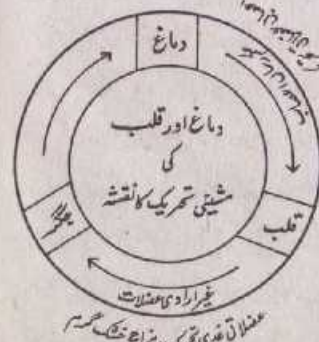 دماغ
دماغ اور قلب
کی
مشینی تحریک کا نقشہ
قلب
جگر
غیر ارادی عضلات
عضلاتی غدی تحریک مزاج خشک گرم